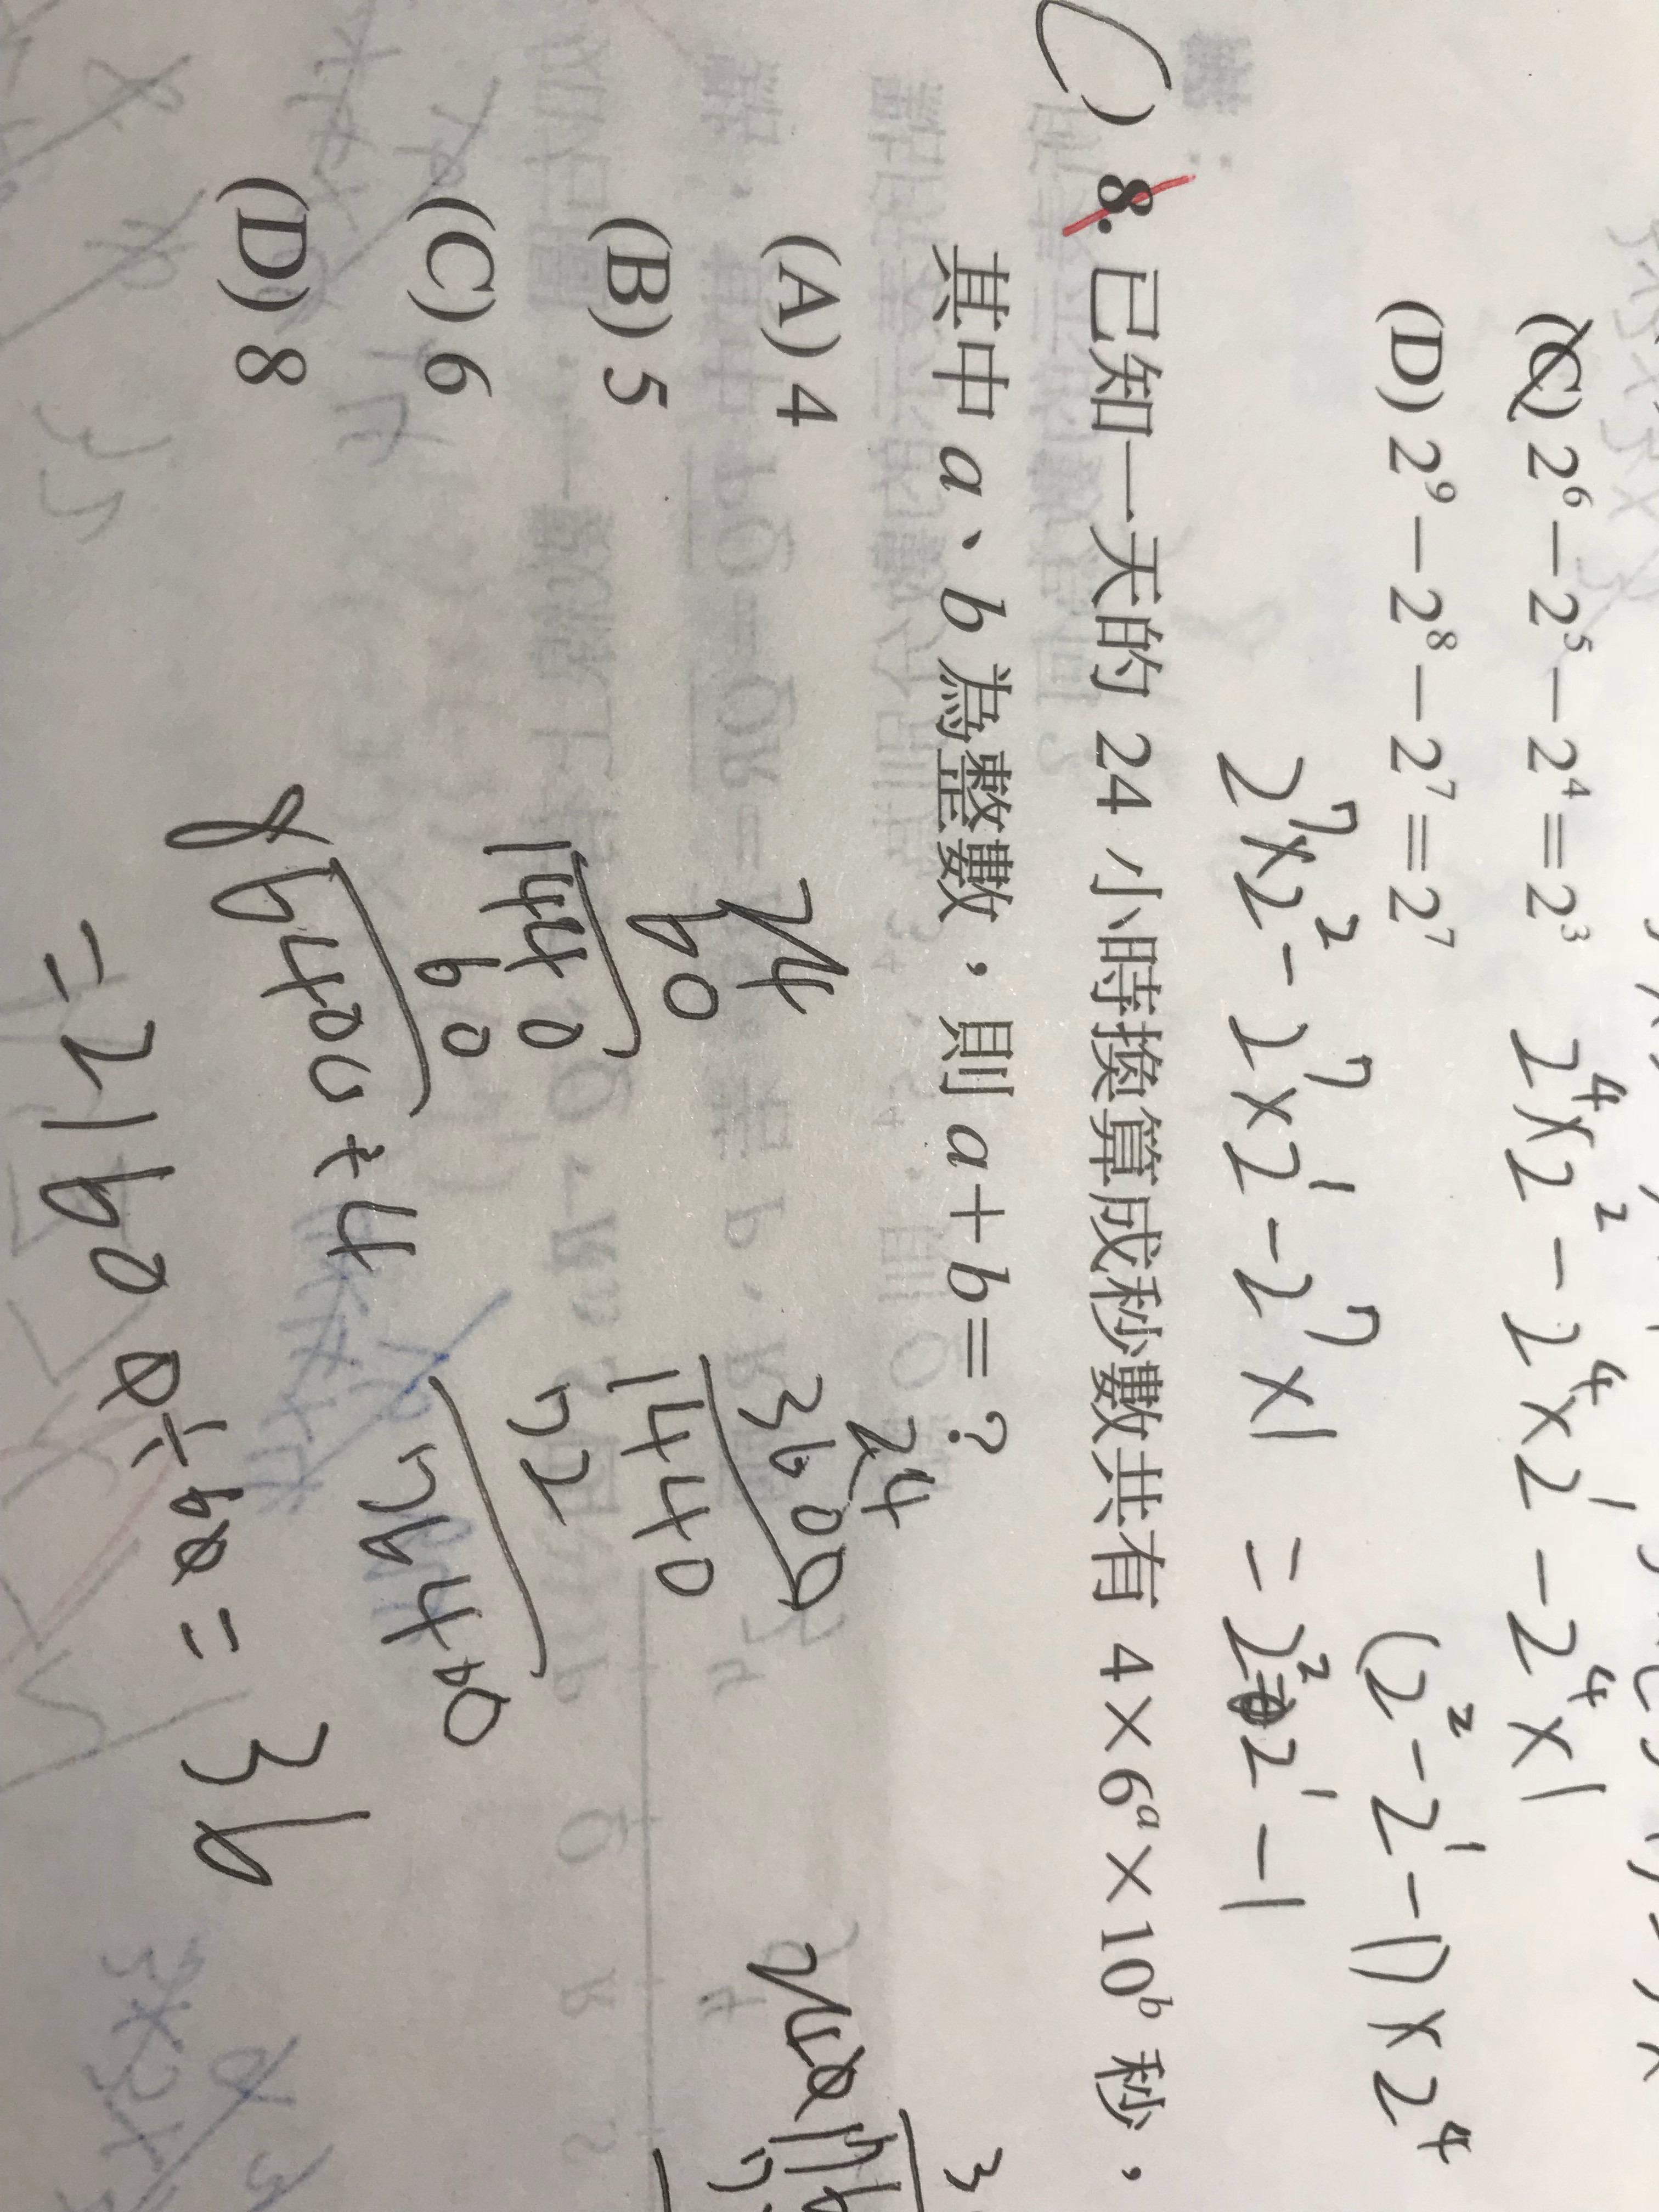 (C) 2⁶－2⁵－2⁴＝2³
2⁴×2²－2⁴×2¹－2⁴×1
(2²－2¹－1)×2⁴
(D) 2⁹－2⁸－2⁷＝2⁷
2⁷×2²－2⁷×2¹－2⁷×1
( ) 8. 已知一天的 24 小時換算成秒數共有 4×6ᵃ×10ᵇ 秒，
其中 a、b 為整數，則 a＋b＝？
(A) 4
(B) 5
(C) 6
(D) 8
24
60
1440
60
86400÷4
24
3600
1440
72